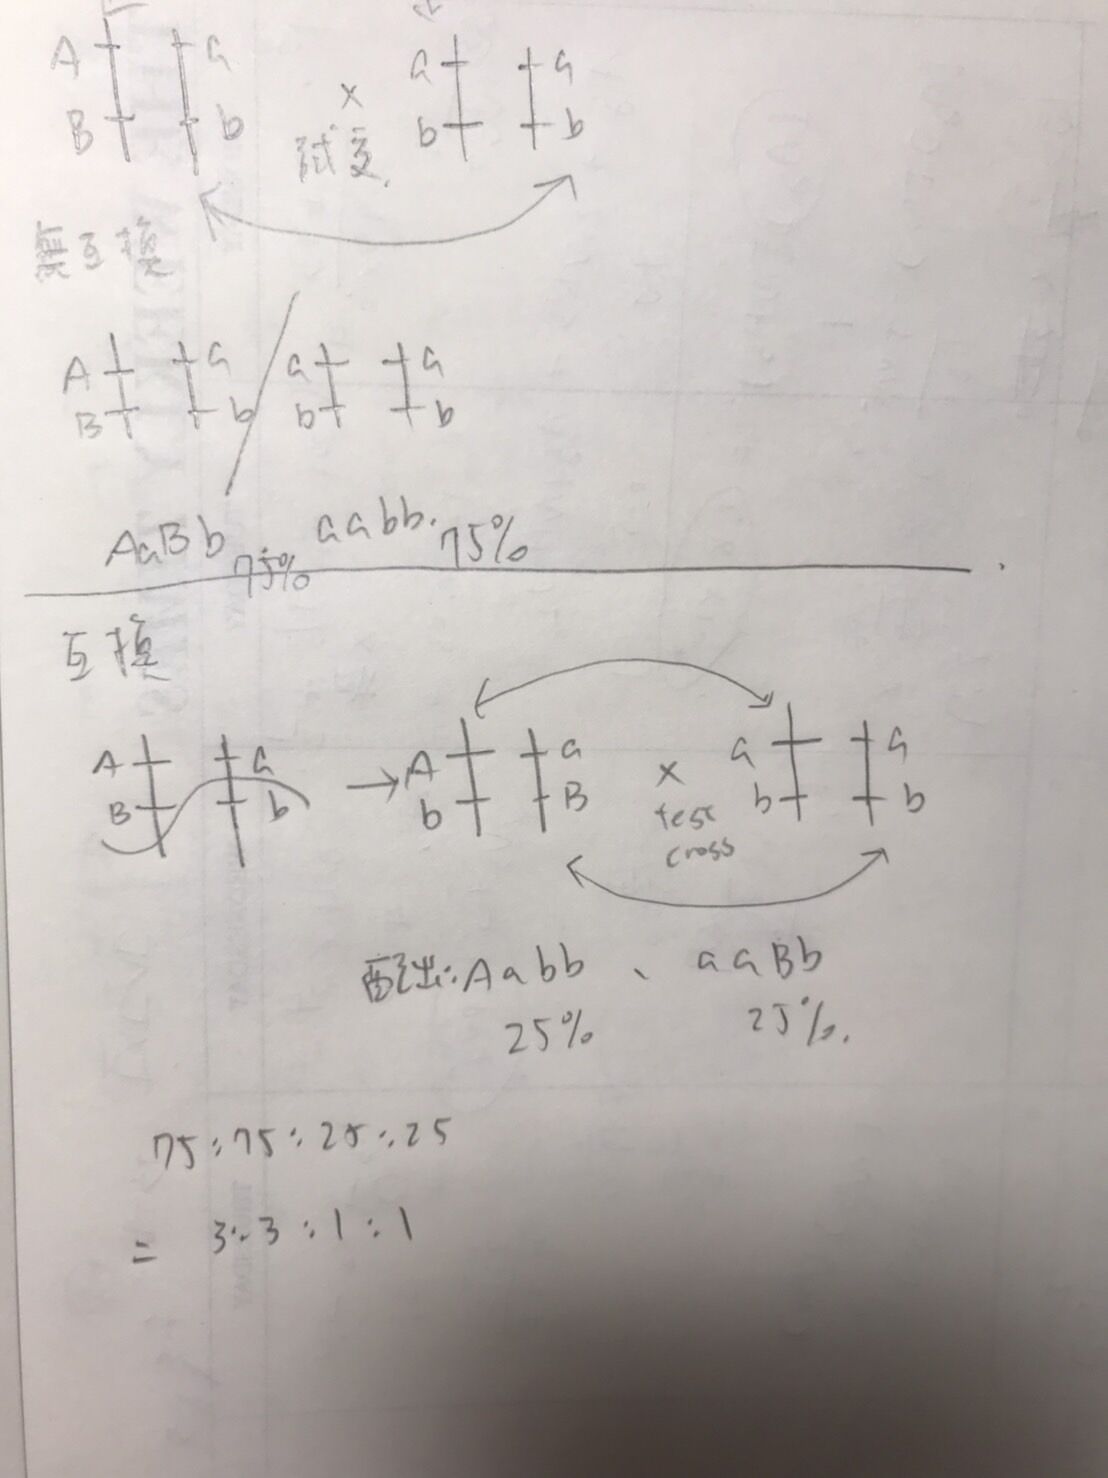 A a a a
B b × b b
試交.
無互換
A a a a
B b b b
AaBb 75% aabb. 75%
互換
A a → A a × a a
B b b B test cross b b
配出: Aabb 、 aaBb
25% 25%.
75:75:25:25
= 3:3:1:1